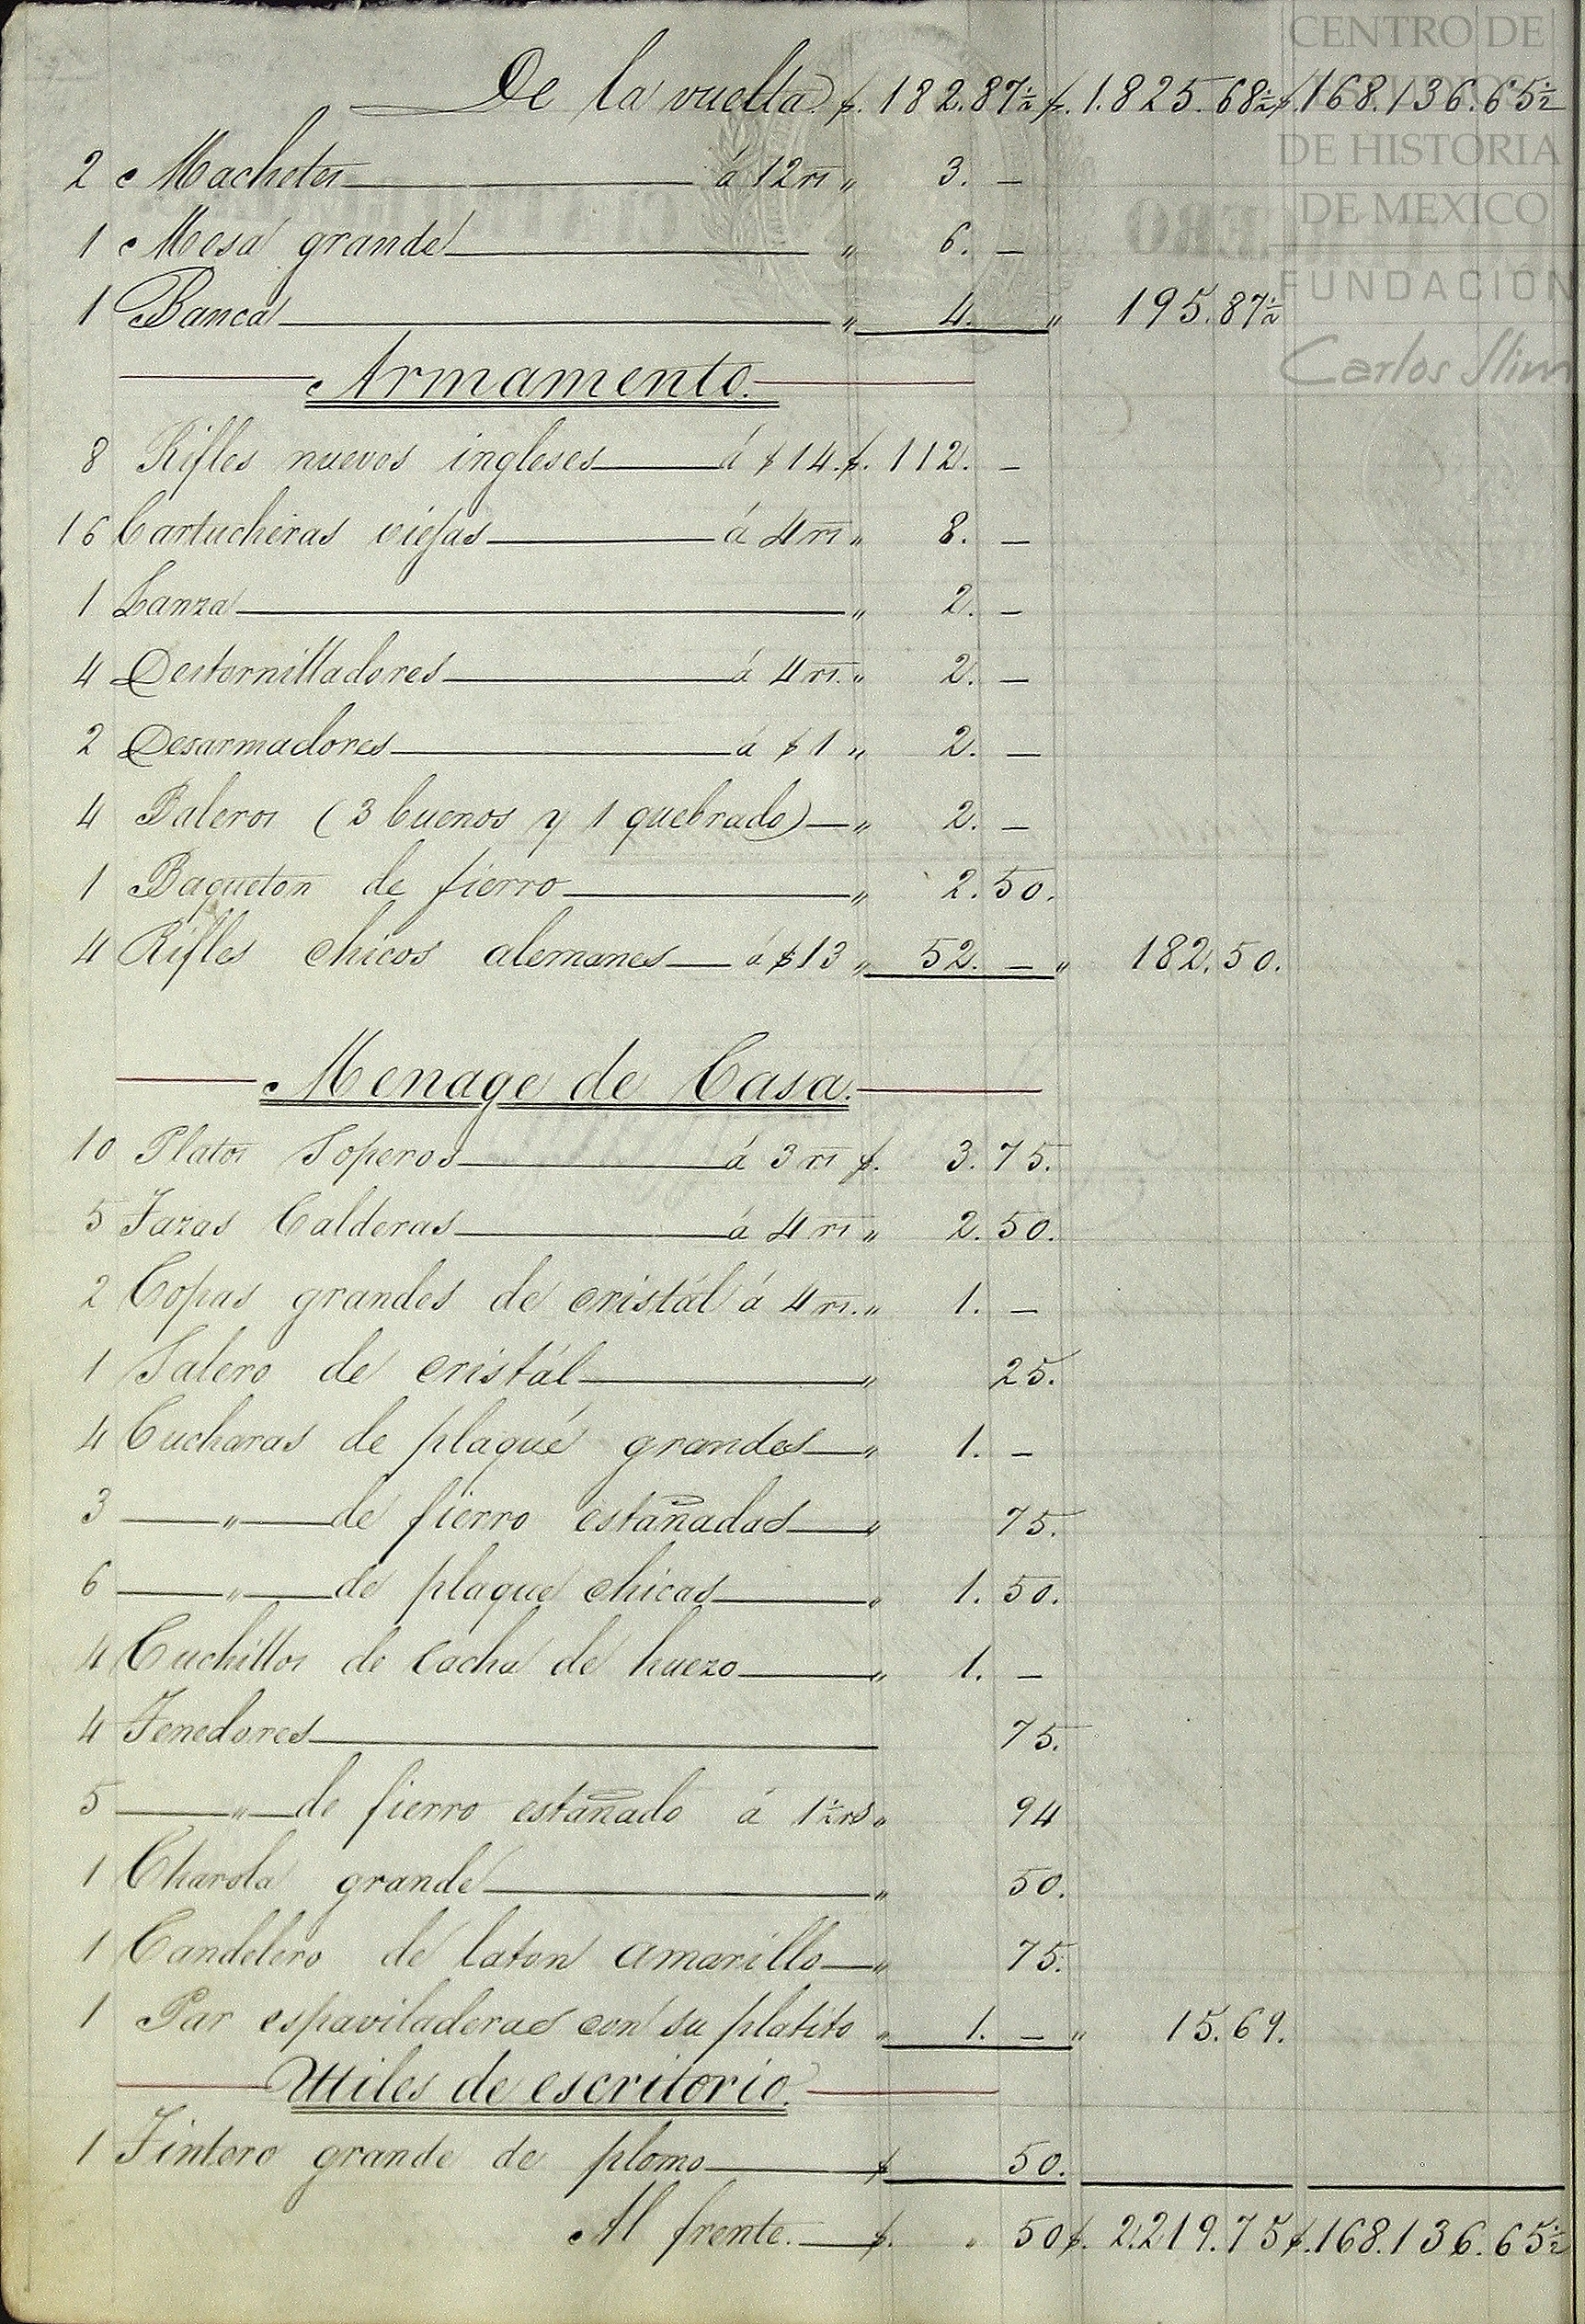 CENTRO DE
ESTUDIOS
DE HISTORIA
DE MEXICO
FUNDACIÓN
Carlos Slim
De la vuelta. $. 182.87½ $. 1.825.68½ $. 168.136.65½
2 Machetes á 12 rs " 3. —
1 Mesa grande " 6. —
1 Banca " 4. " 195.87½
Armamento.
8 Rifles nuevos ingleses á $14. $. 112. —
16 Cartucheras viejas á 4 rs " 8. —
1 Lanza " 2. —
4 Destornilladores á 4 rs. " 2. —
2 Desarmadores á $1 " 2. —
4 Baleros (3 buenos y 1 quebrado) — " 2. —
1 Baqueton de fierro " 2.50.
4 Rifles chicos alemanes — á $13 " 52. — " 182.50.
Menage de Casa.
10 Platos Soperos á 3 rs $. 3.75.
5 Tazas Calderas á 4 rs " 2.50.
2 Copas grandes de cristál á 4 rs. " 1. —
1 Salero de cristál " 25.
4 Cucharas de plaqué grandes — " 1. —
3 — " — de fierro estañadas — " 75.
6 — " — de plaque chicas " 1.50.
4 Cuchillos de cacha de huezo " 1. —
4 Tenedores 75.
5 — " — de fierro estañado á 1½ rs " 94
1 Charola grande " 50.
1 Candelero de laton amarillo — " 75.
1 Par espaviladeras con su platito " 1. — " 15.69.
Utiles de escritorio.
1 Tintero grande de plomo $ 50.
Al frente. — $. " 50 $. 2.219.75 $. 168.136.65½